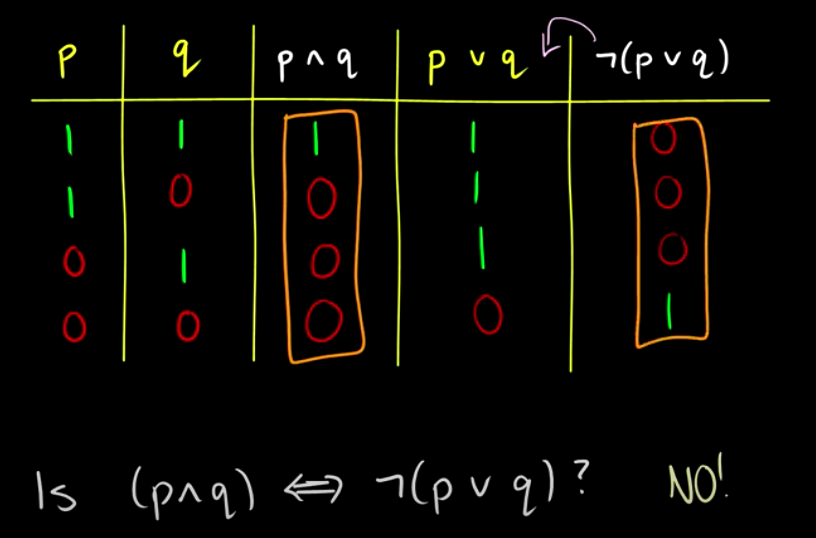 p q p ∧ q p ∨ q ¬(p ∨ q)
1 1 1 1 0
1 0 0 1 0
0 1 0 1 0
0 0 0 0 1
Is (p∧q) ⇔ ¬(p ∨ q)? NO!